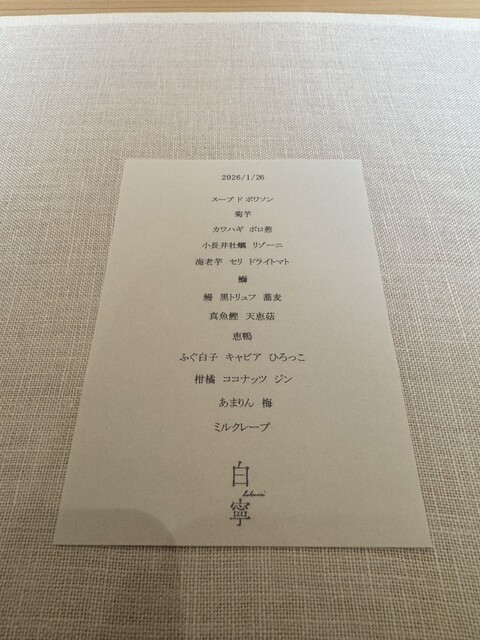 2026/1/26
スープ ド ポワソン
菊芋
カワハギ ポロ葱
小長井牡蠣 リゾーニ
海老芋 セリ ドライトマト
鰤
鰻 黒トリュフ 蕎麦
真魚鰹 天恵菇
恵鴨
ふぐ白子 キャビア ひろっこ
柑橘 ココナッツ ジン
あまりん 梅
ミルクレープ
白
寧